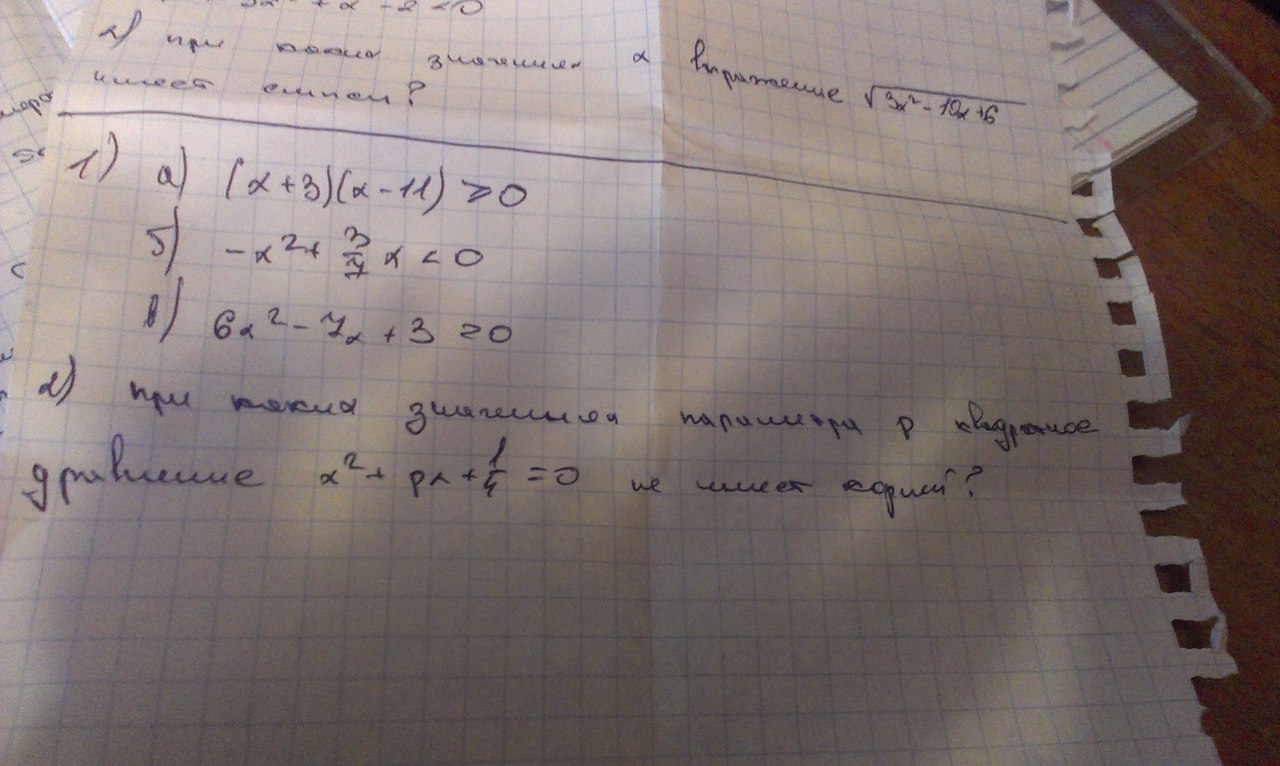 2) при каких значениях x выражение √3x² - 10x + 6
имеет смысл?
1) а) (x+3)(x-11) ≥ 0
б) -x² + 3/7 x < 0
в) 6x² - 7x + 3 ≥ 0
2) при каких значениях параметра p квадратное
уравнение x² + px + 1/4 = 0 не имеет корней?